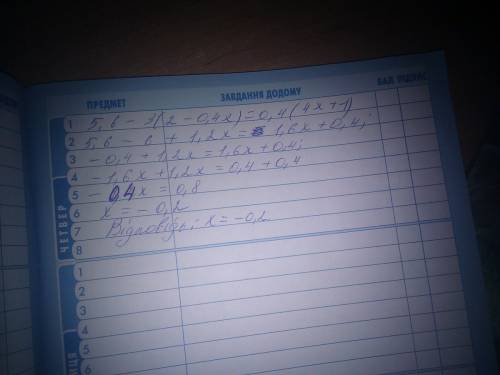 ПРЕДМЕТ ЗАВДАННЯ ДОДОМУ БАЛ ПІДПИС
1 5,6 - 3(2 - 0,4x) = 0,4(4x+1)
2 5,6 - 6 + 1,2x = 1,6x + 0,4;
3 - 0,4 + 1,2x = 1,6x + 0,4;
4 - 1,6x + 1,2x = 0,4 + 0,4
5 - 0,4x = 0,8
6 x = - 0,2
7 Відповідь: x = -0,2
8
ЧЕТВЕР
1
2
3
4
5
6